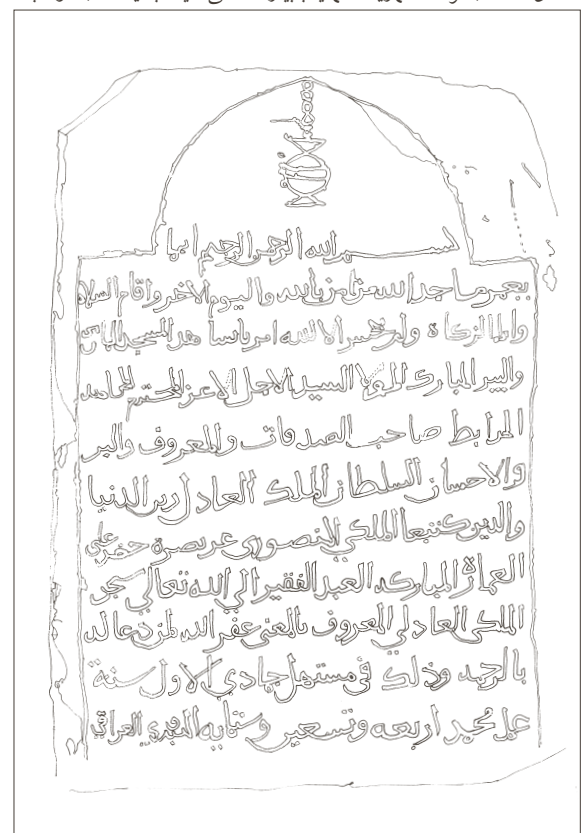 بسم الله الرحمن الرحيم انما
يعمر مساجد الله من امن بالله واليوم الاخر واقام الصلاة
واتا الزكاة ولم يخش الا الله امر بانشا هذا المسجد المبارك
والبير المبارك المولا السيد الاجل الاعز المحترم المجاهد
المرابط صاحب الصدقات والمعروف والبر
والاحسان السلطان الملك العادل زين الدنيا
والدين كتبغا الملكي المنصوري عز نصره حضر على
العمارة المباركه العبد الفقير الى الله تعالى سنجر
الملكي العادلي المعروف غفر الله لمن دعا له
بالرحمه وذلك في مستهل جمادي الاول سنة
عمل محمد اربعه وتسعين وستمايه العراقي